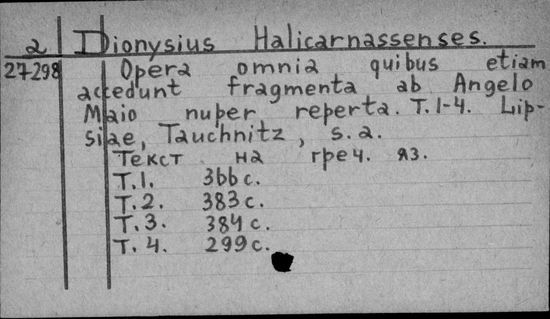 2 Dionysius Halicarnassenses.
27-298 Opera omnia quibus etiam
accedunt fragmenta ab Angelo
Maio nuper reperta. T. 1-4. Lip-
siae, Tauchnitz, s. a.
Текст на греч. яз.
Т. 1. 366 с.
Т. 2. 383 с.
Т. 3. 384 с.
Т. 4. 299 с.